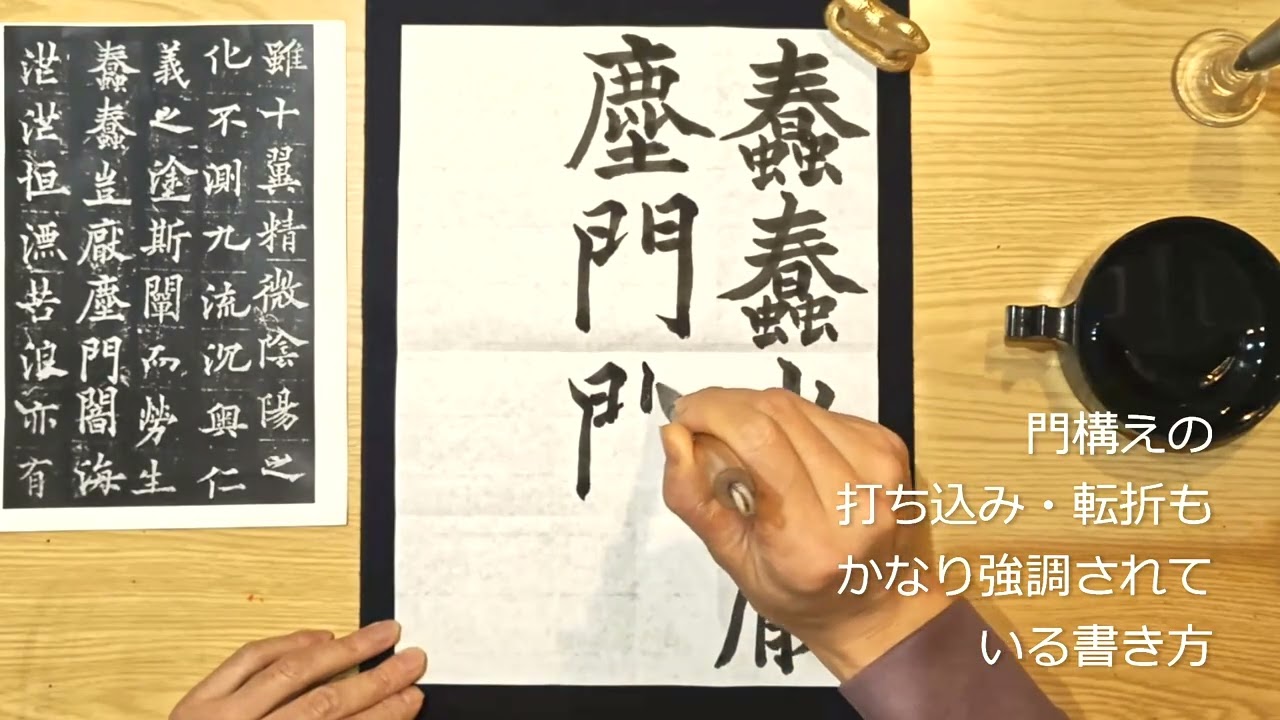 雖十翼精微陰陽之
化不測九流沉奧仁
義之塗斯闡而勞生
蠢蠢豈厭塵門闇海
茫茫恒漂苦浪亦有
蠢蠢
塵門門
門構えの
打ち込み・転折も
かなり強調されて
いる書き方